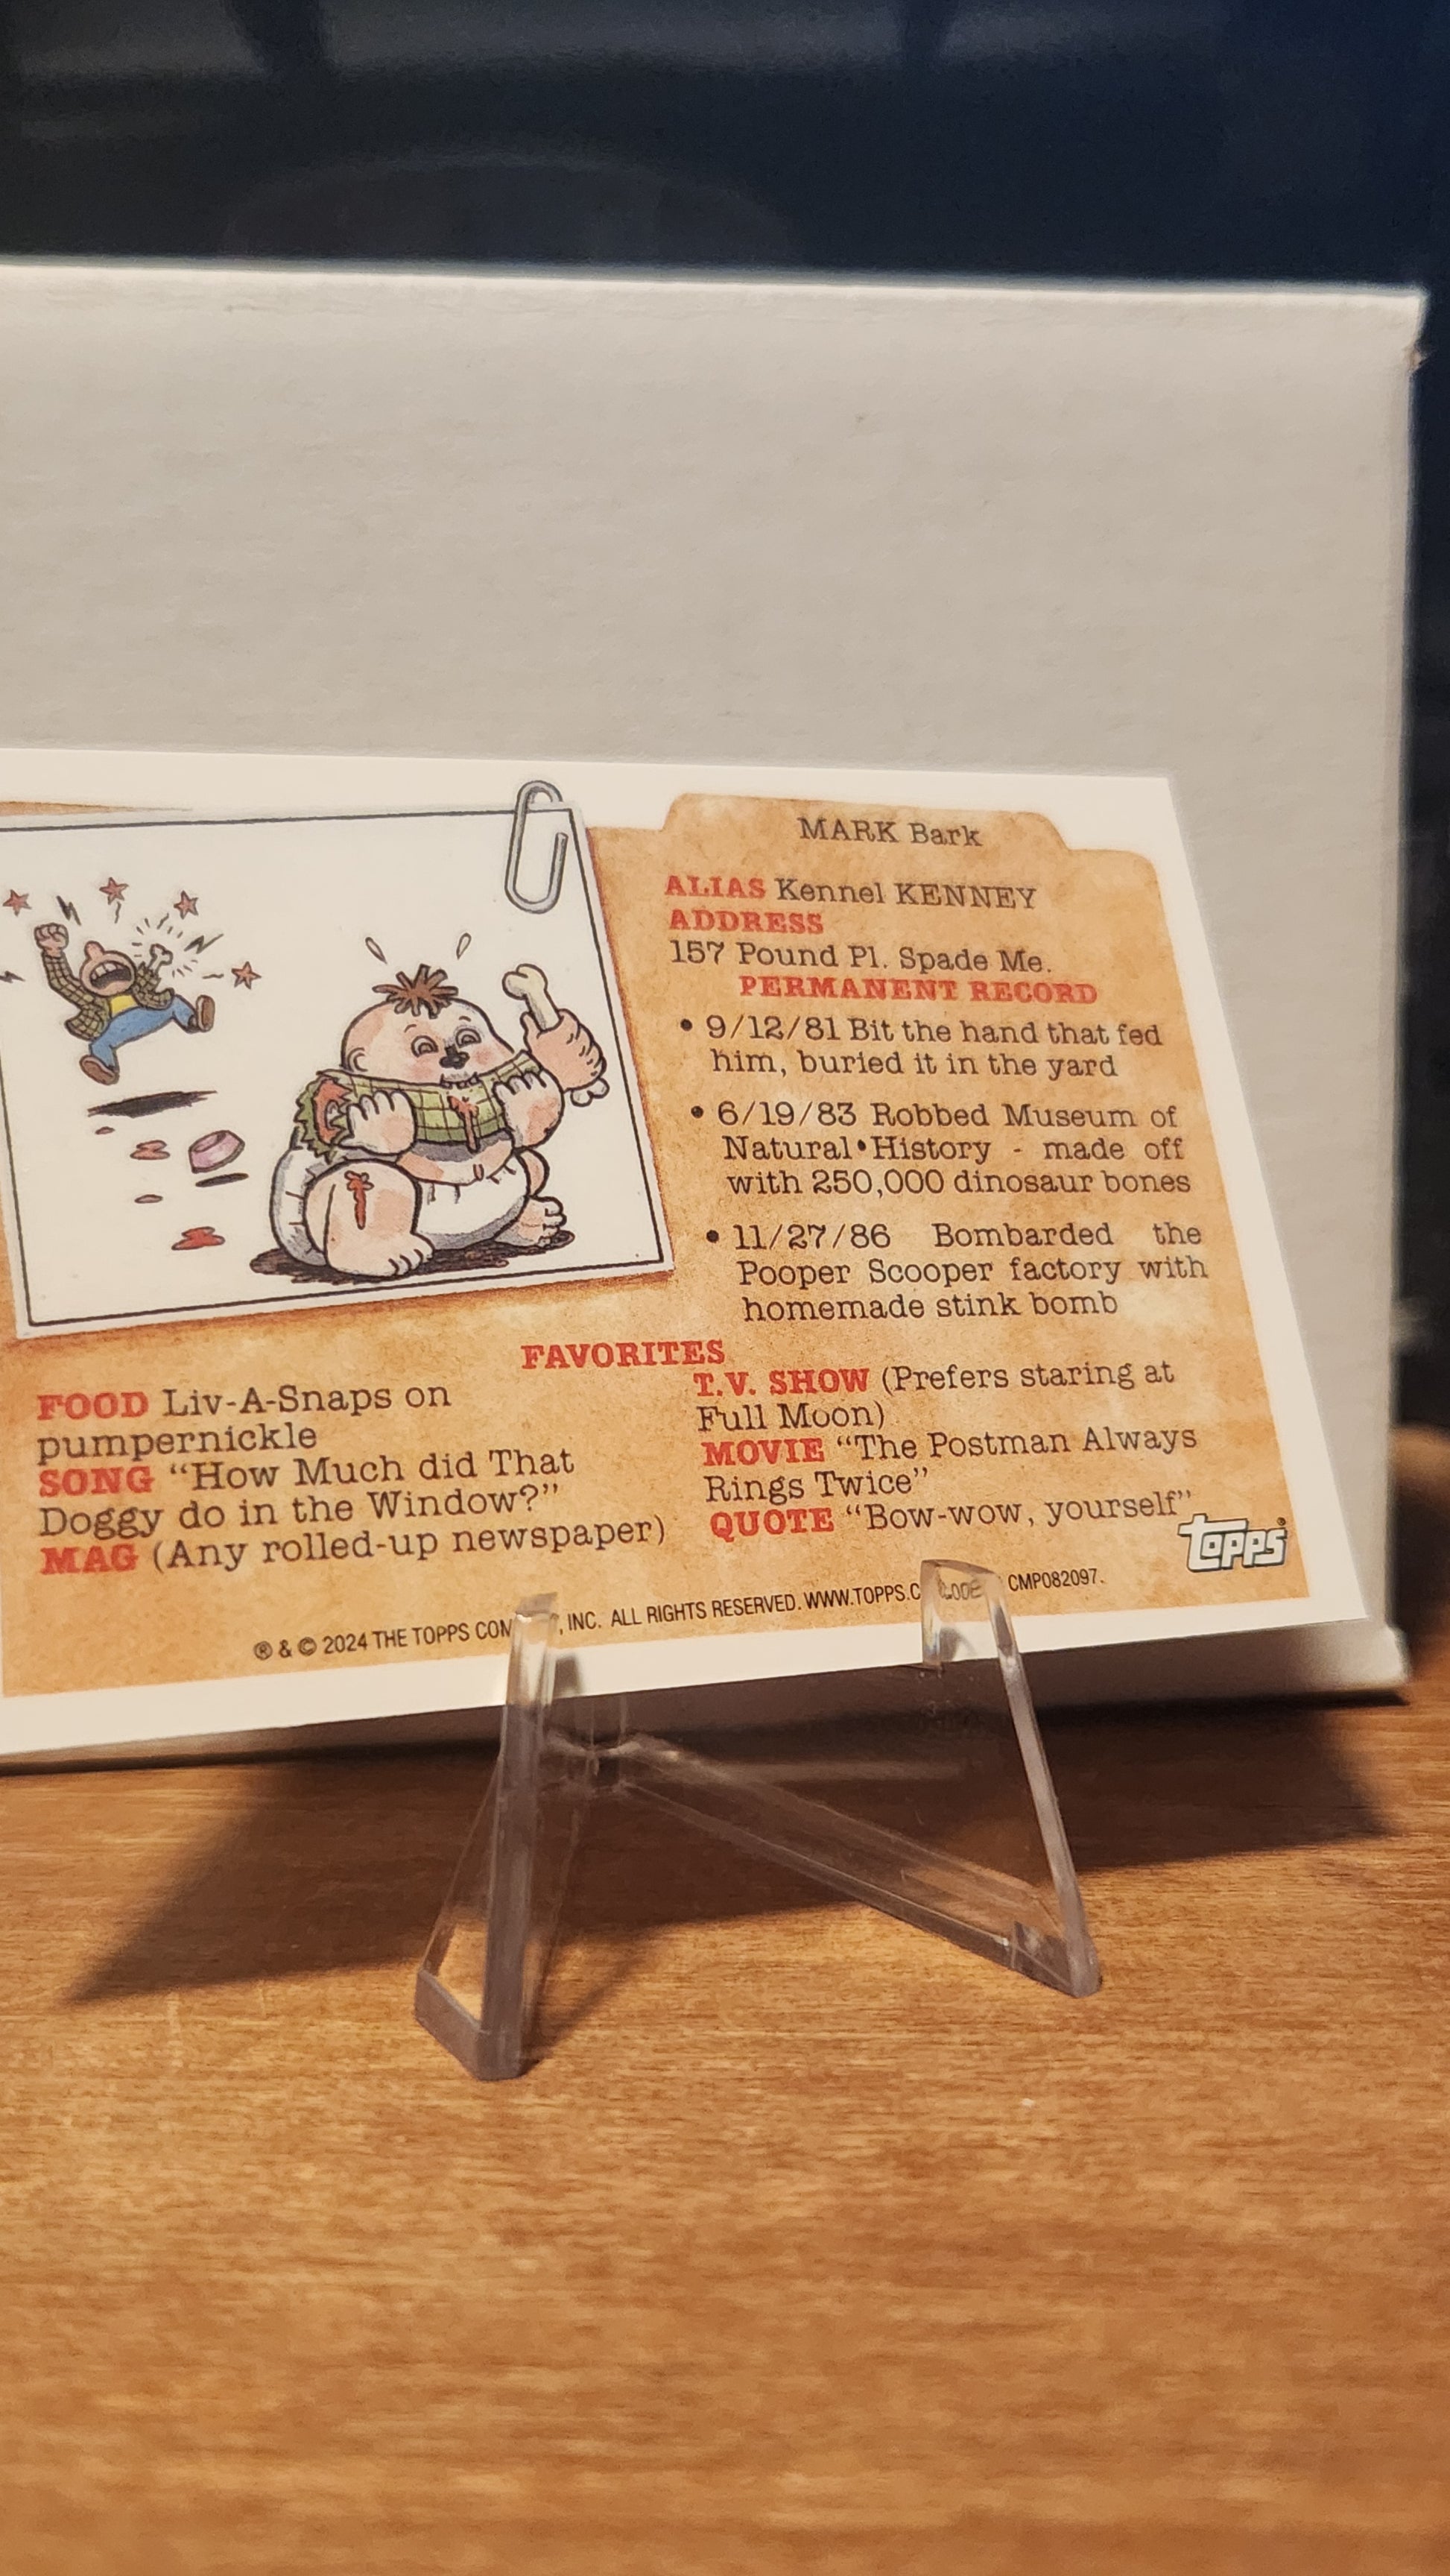 MARK Bark
ALIAS Kennel KENNEY
ADDRESS
157 Pound Pl. Spade Me.
PERMANENT RECORD
• 9/12/81 Bit the hand that fed
him, buried it in the yard
• 6/19/83 Robbed Museum of
Natural•History - made off
with 250,000 dinosaur bones
• 11/27/86 Bombarded the
Pooper Scooper factory with
homemade stink bomb
FAVORITES
FOOD Liv-A-Snaps on
pumpernickle
SONG “How Much did That
Doggy do in the Window?”
MAG (Any rolled-up newspaper)
T.V. SHOW (Prefers staring at
Full Moon)
MOVIE “The Postman Always
Rings Twice”
QUOTE “Bow-wow, yourself”
Topps
® & © 2024 THE TOPPS , INC. ALL RIGHTS RESERVED. WWW.TOPPS.C CODE CMP082097.